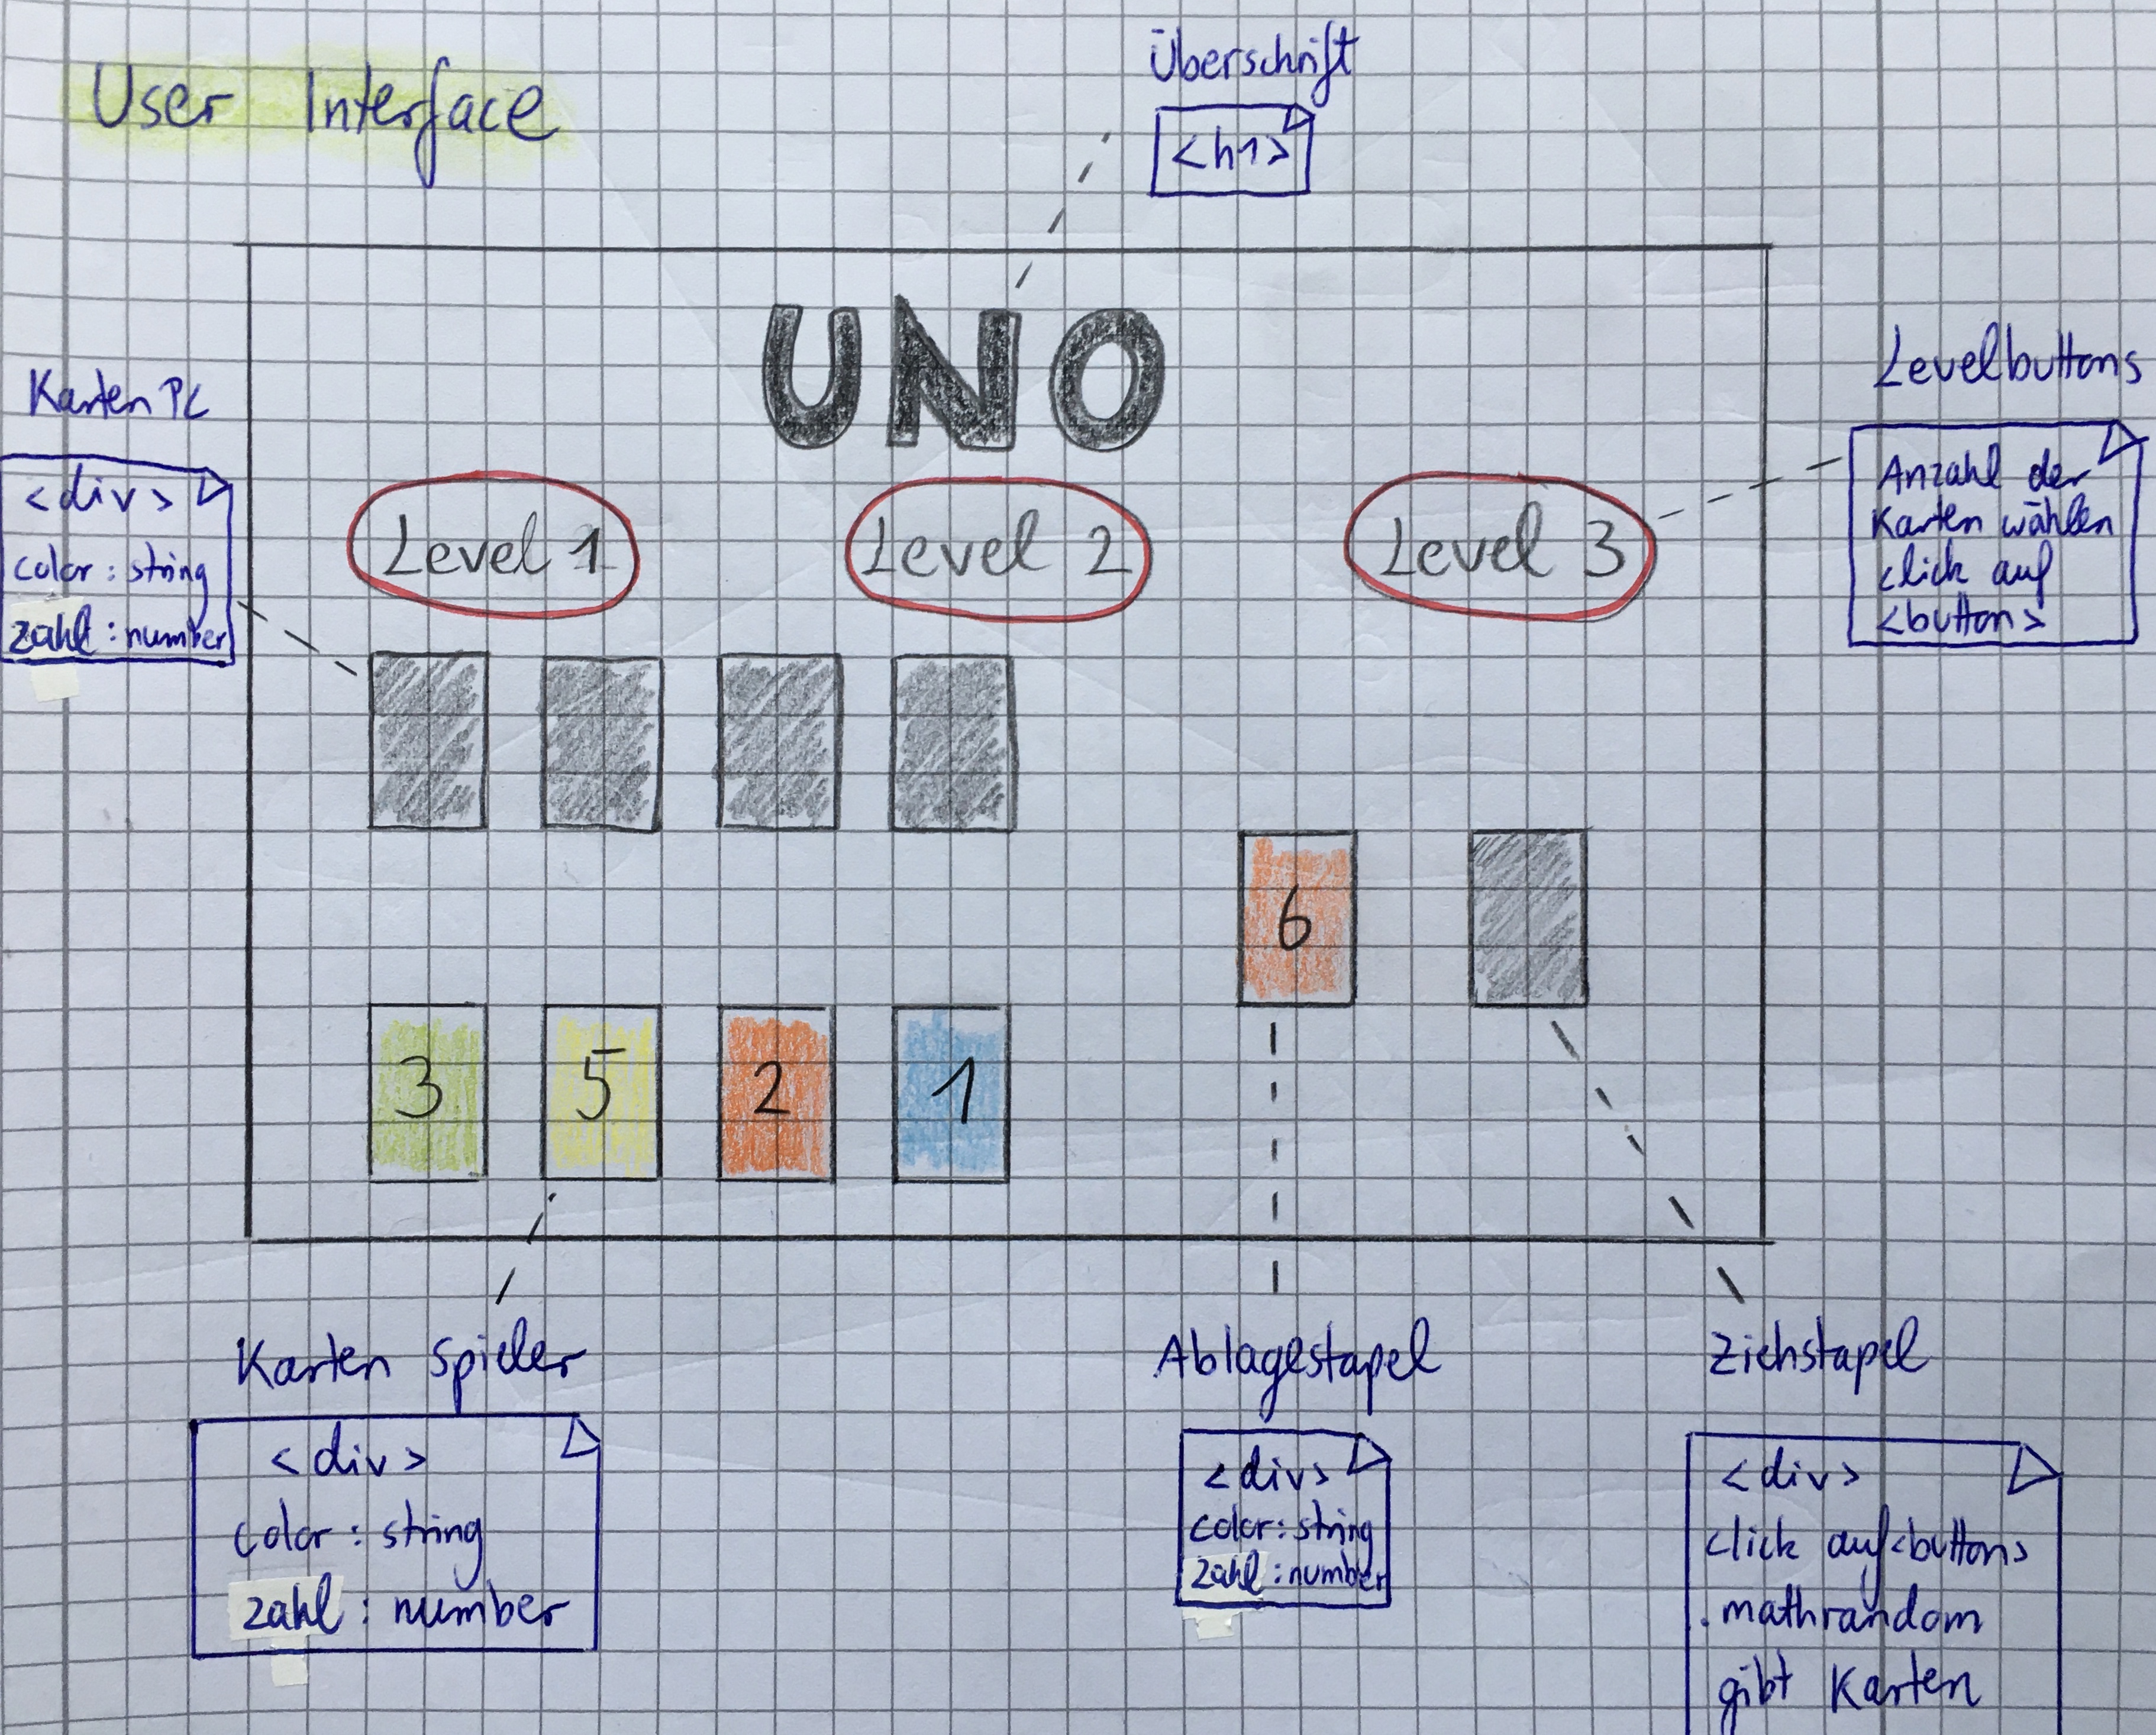 User Interface
Überschrift
<h1>
UNO
Karten PC
<div>
color : string
zahl : number
Level 1
Level 2
Level 3
Levelbuttons
Anzahl der
Karten wählen
click auf
<button>
6
3
5
2
1
Karten Spieler
<div>
color : string
zahl : number
Ablagestapel
<div>
color : string
zahl : number
Ziehstapel
<div>
click auf <button>
. mathrandom
gibt Karten